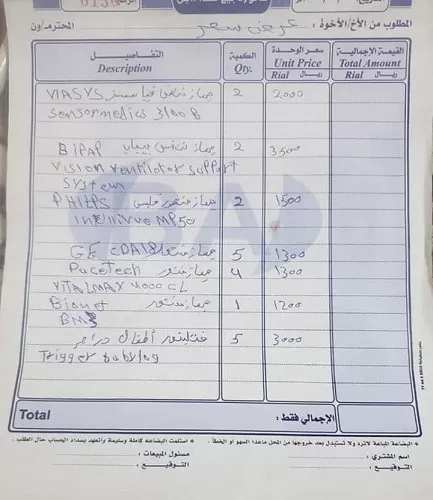 0136
المطلوب من الأخ/الأخوة : عرض سعر المحترم/ون
التفاصيل Description الكمية Qty. سعر الوحدة Unit Price Rial ريال القيمة الإجمالية Total Amount Rial ريال
VIASYS جهاز تنفس فياسس 2 2000
Sensormedics 3100B
BIPAP جهاز تنفس بيباب 2 3500
Vision Ventilator Support
System
PHILPS جهاز منتور فلبس 2 1500
Intellivue MP50
GE جهاز منتور 5 1300
Pacetech جهاز منتور 4 1300
VITALMAX 4000 CL
Bionet جهاز منتور 1 1200
BM3
فنتليتور أطفال دراجر 5 3000
Trigger babylog
Total الإجمالي فقط :
• البضاعة المباعة لاترد ولا تستبدل بعد خروجها من المحل ماعدا السهو او الخطأ .
• استلمت البضاعه كاملة وسليمة وأتعهد بسداد الحساب حال الطلب .
اسم المشتري : مسئول المبيعات :
التوقيع : التوقيع :